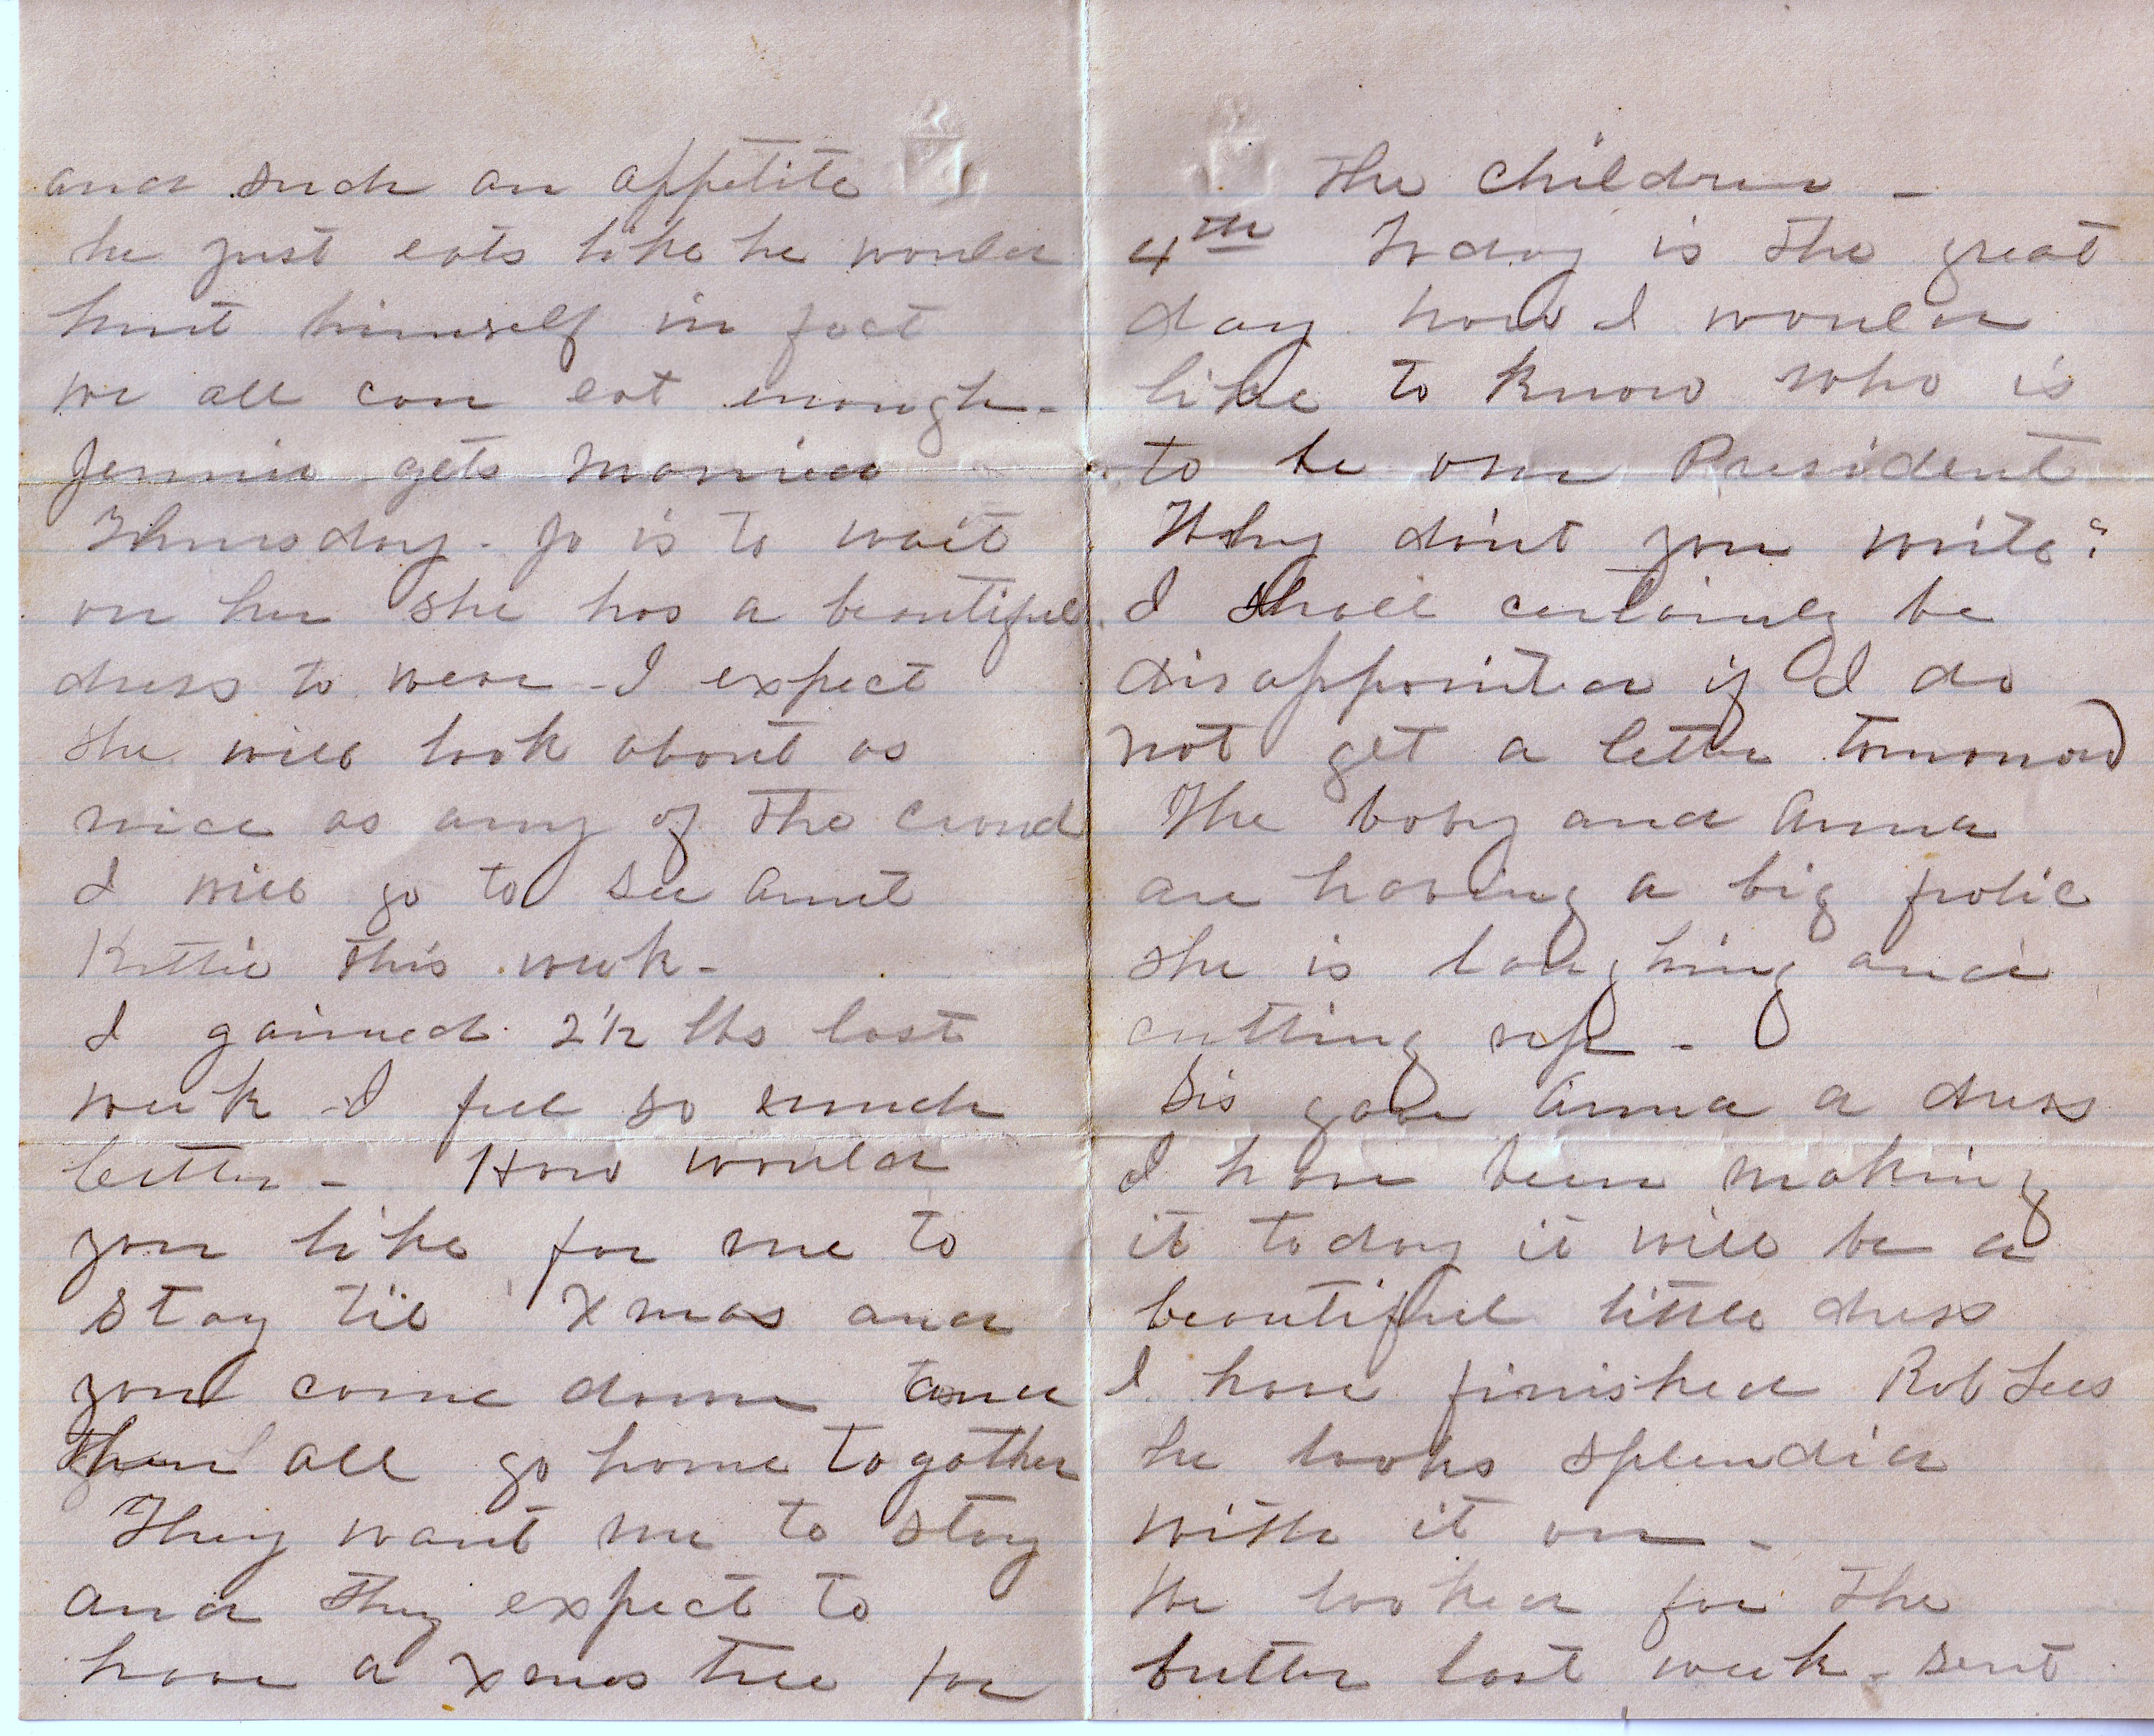 and such an appetite
he just eats like he would
hurt himself in fact
we all can eat enough -
Jennie gets married
Thursday - Jo is to wait
on her she has a beautiful
dress to wear - I expect
she will look about as
nice as any of the crowd
I will go to see Aunt
Kittie this week -
I gained 2 1/2 lbs last
week - I feel so much
better - How would
you like for me to
stay til Xmas and
you come down and
then all go home togather
They want me to stay
and they expect to
have a Xmas tree for
the children -
4th Today is the great
day how I would
like to know who is
to be our President
Why don't you write?
I shall certainly be
disappointed if I do
not get a letter tomorrow
The baby and Anna
are having a big frolic
she is laughing and
cutting up -
Sis gave Anna a dress
I have been making
it today it will be a
beautiful little dress
I have finished Rob Lees
he looks splendid
with it on -
We looked for the
butter last week - sent